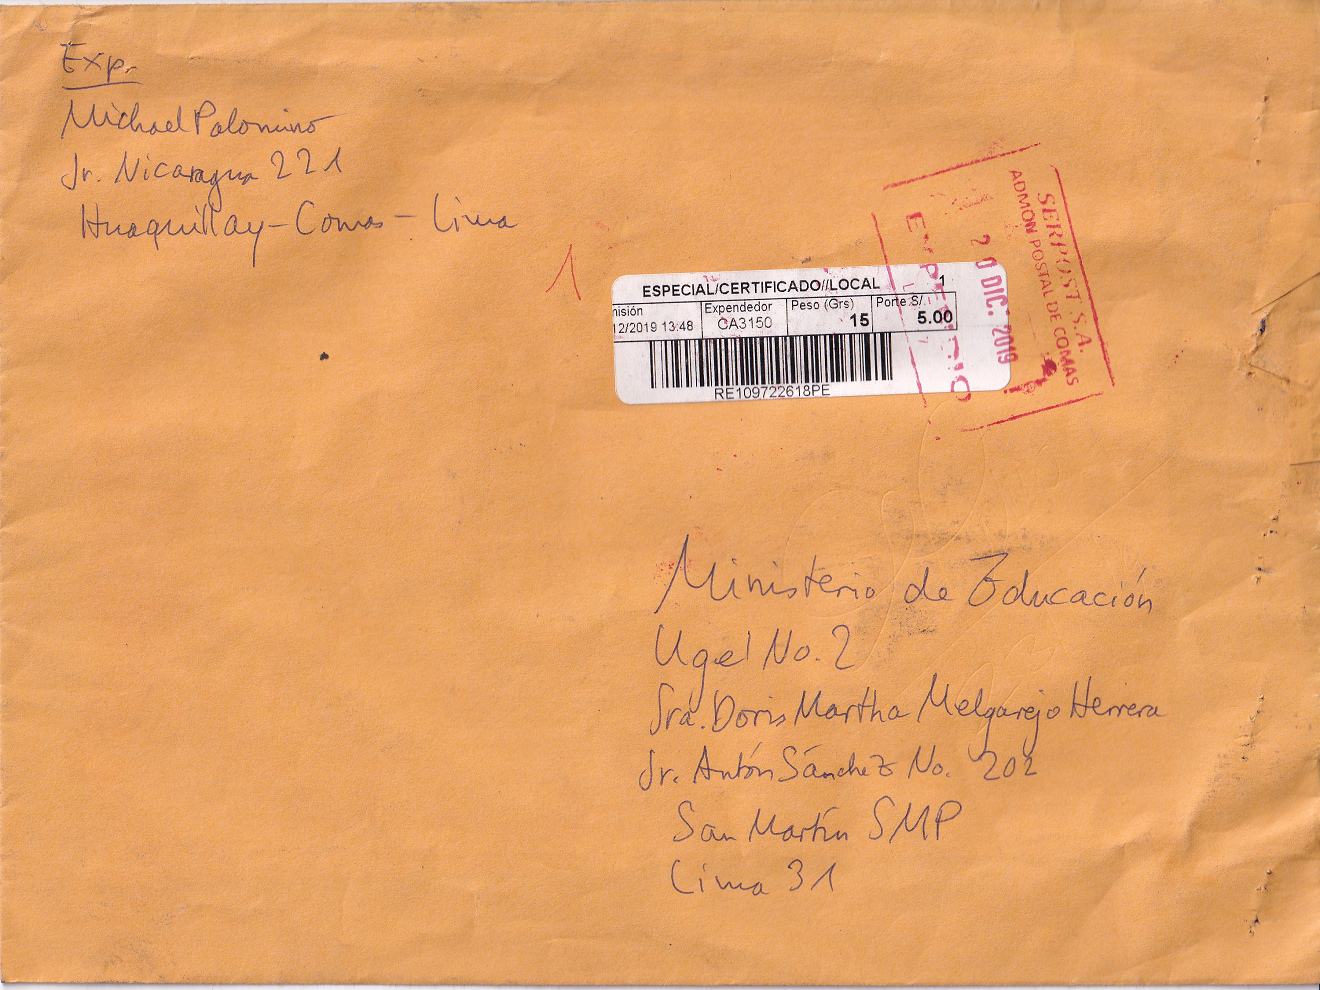 Exp.
Michael Palomino
Jr. Nicaragua 221
Huaquillay - Comas - Lima
1
ESPECIAL/CERTIFICADO//LOCAL 1
isión Expendedor Peso (Grs) Porte S/.
12/2019 13:48 CA3150 15 5.00
RE109722618PE
SERPOST S.A.
ADMON POSTAL DE COMAS
20 DIC. 2019
Ministerio de Educación
Ugel No. 2
Sra. Doris Martha Melgarejo Herrera
Jr. Antón Sánchez No. 202
San Martín SMP
Lima 31